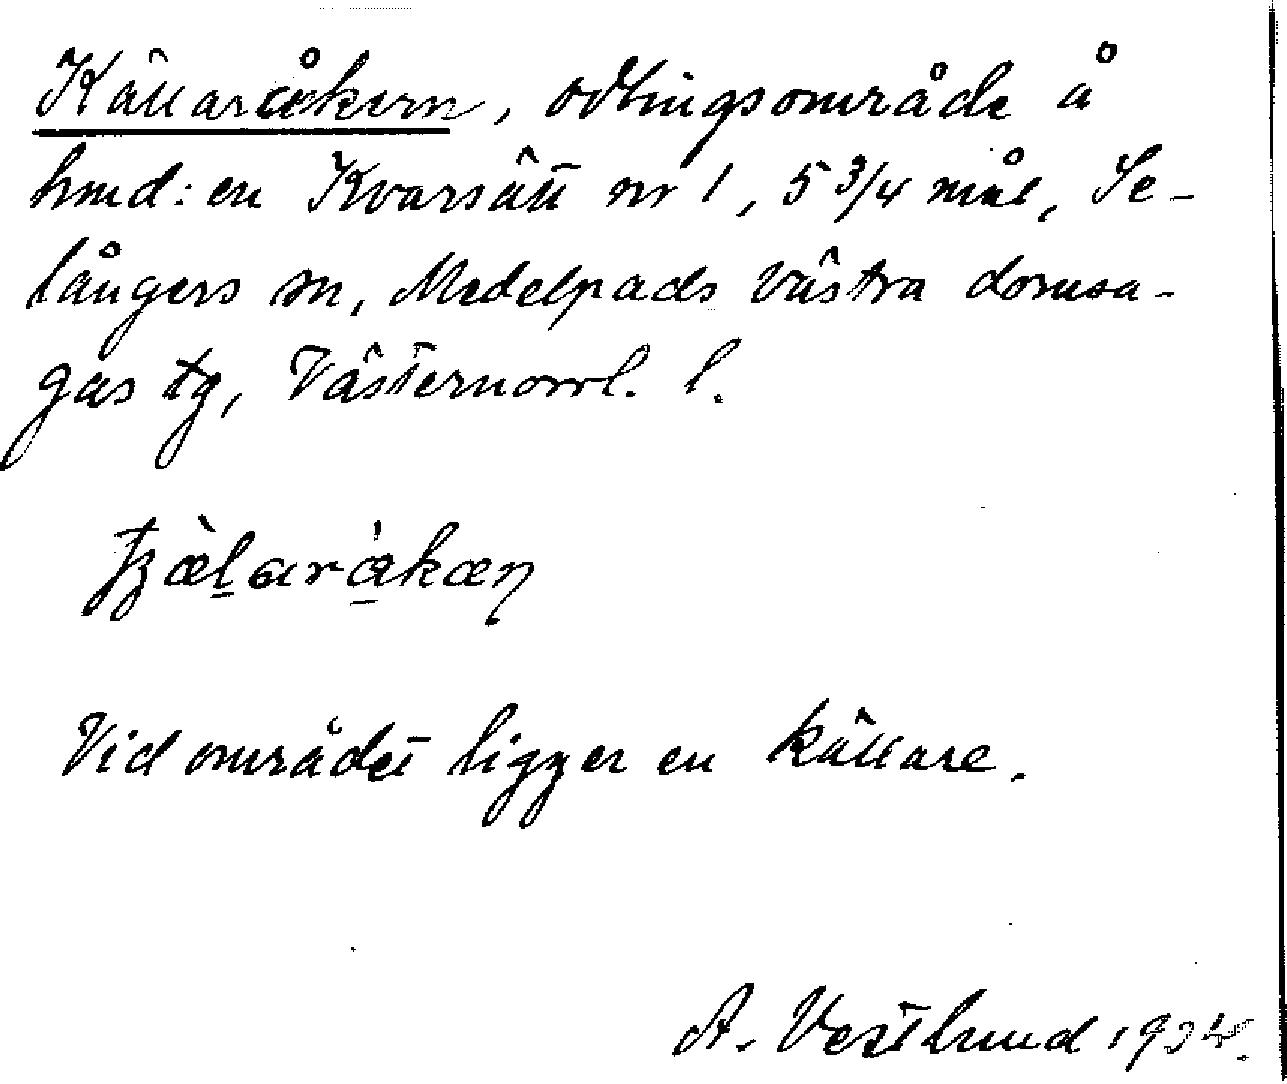 Källaråkern, odlingsområde å
hmd:en Kvarsätt nr 1, 5 3/4 mål, Se-
långers sn, Medelpads västra domsa-
gas tg, Västernorrl. l.
Vid området ligger en källare.
A. Vestlund 1934.